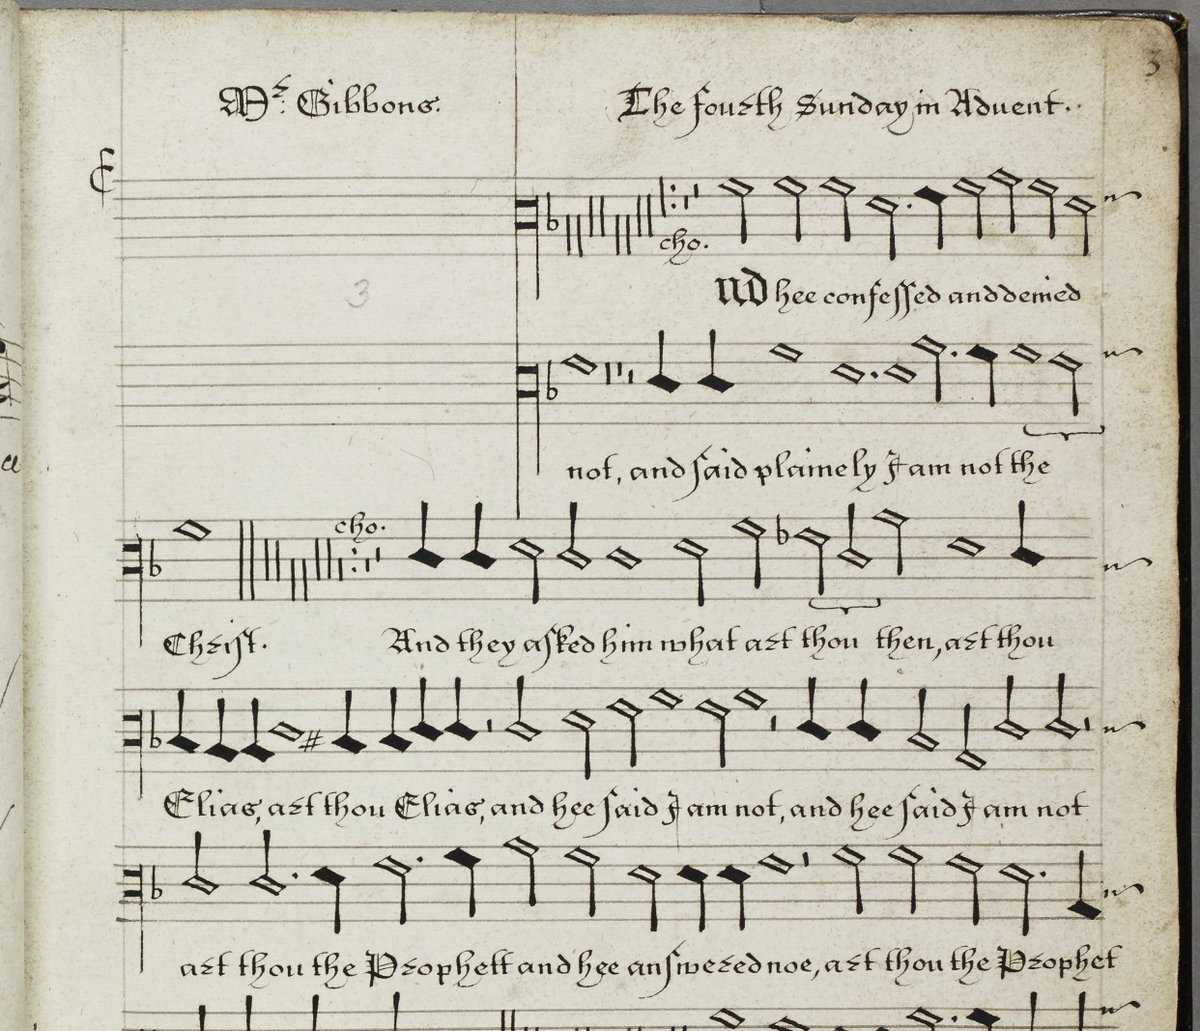 Mr. Gibbons. The fourth Sunday in Advent.
3
cho.
nd hee confessed and denied
3
not, and said plainely I am not the
cho.
Christ. And they asked him what art thou then, art thou
Elias, art thou Elias, and hee said I am not, and hee said I am not
art thou the Prophett and hee answered noe, art thou the Prophet